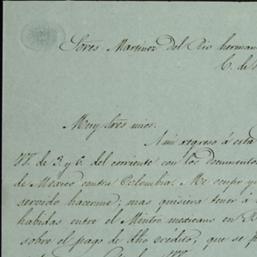 Sores Martinez del Rio herman
C. de
Muy Sres mios.
A mi regreso á esta
VV. de 3 y 6 del corriente con los documentos
de Mexico contra Colombia. Me ocupo
servido hacerme; mas quisiera tener á
habidas entre el Mintro mexicano en
sobre el pago de dho crédito, que se